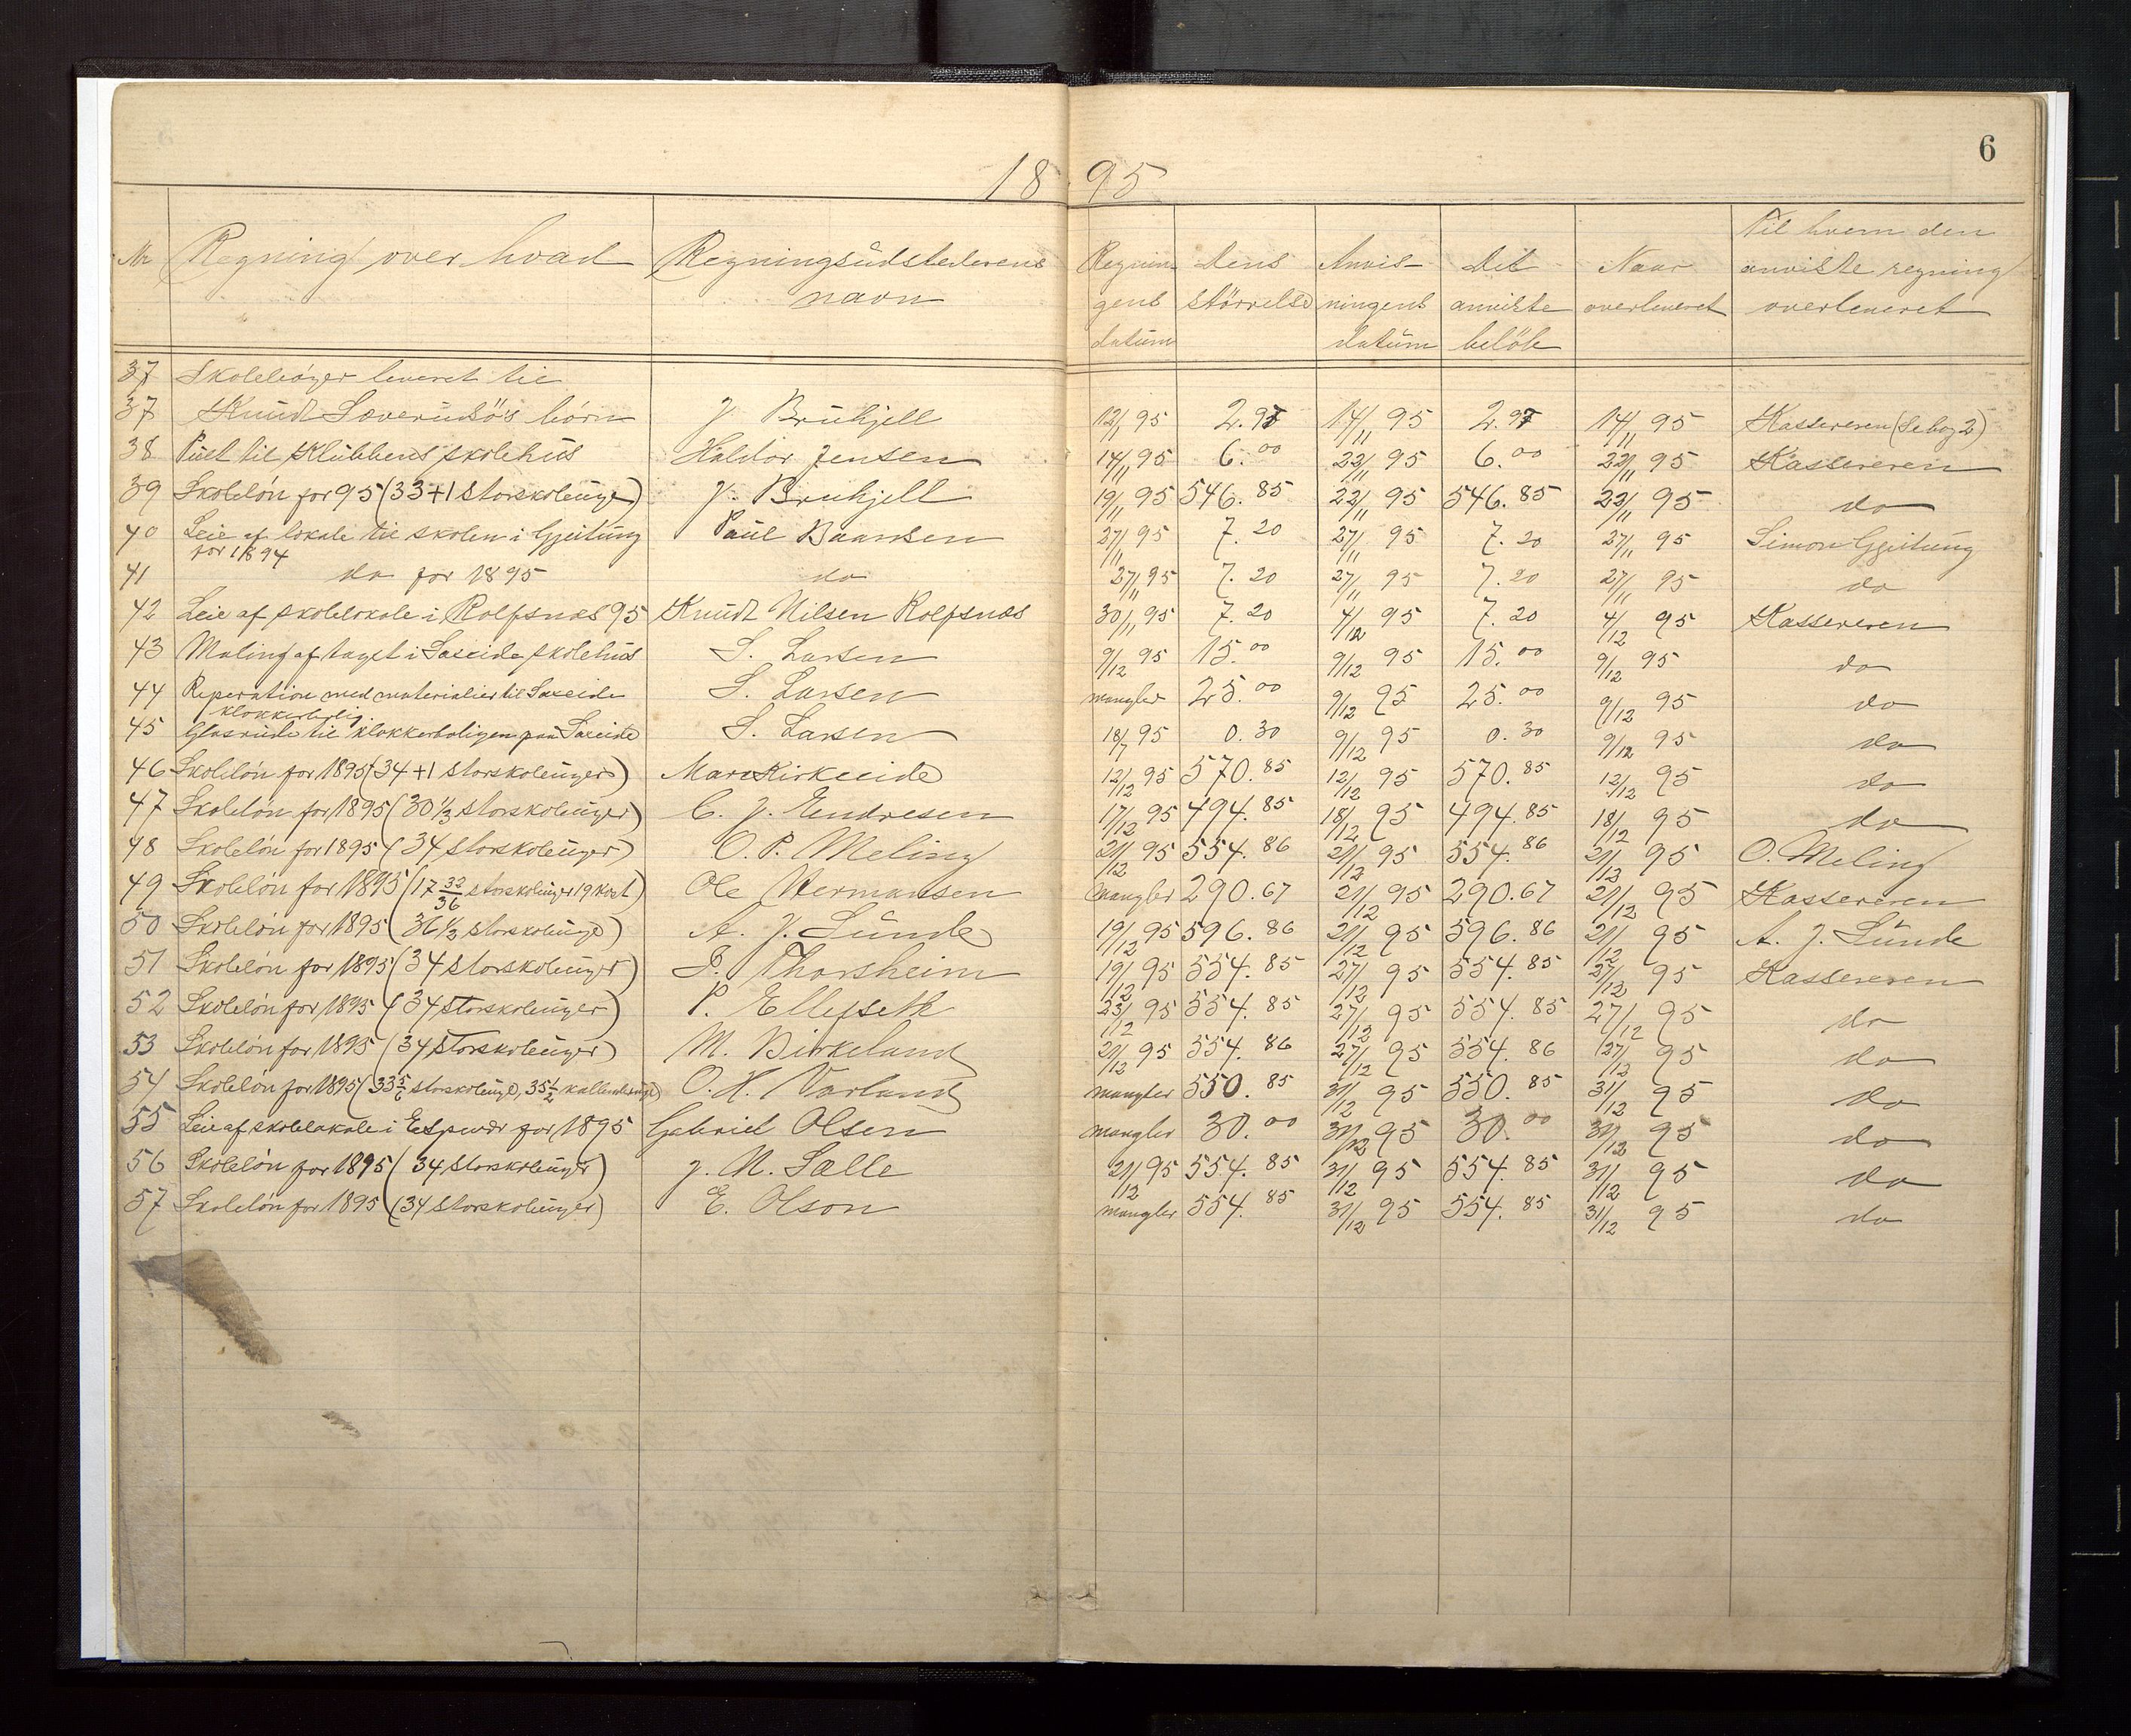 6
18 95
Nr Regning over hvad Regningsüdstederens navn Regnin-gens datüm Dens störrelse Anvis-ningens datüm Det anviste belöb Naar overleveret Til hvem den anviste regning overleveret
37 Skolebøger leveret til
37 Knüdt Sæverüdsö's børn J. Brühjell 12/11 95 2.97 14/11 95 2.97 14/11 95 Kassereren (Se bog 2)
38 Püst til Klübbens skolehüs Haldor Jensen 14/11 95 6.00 22/11 95 6.00 22/11 95 Kassereren
39 Skoleløn for 95 (33+1 Storskoleüger) J. Brühjell 19/11 95 546.85 22/11 95 546.85 22/11 95 do
40 Leie af lokale til skolen i Gjeitüng for 1894 Paül Baardsen 27/11 95 7.20 27/11 95 7.20 27/11 95 Simon Gjeitüng
41 do for 1895 do 27/11 95 7.20 27/11 95 7.20 27/11 95 do
42 Leie af skolelokale i Rolfsnes 95 Knüdt Nilsen Rolfsnes 30/11 95 7.20 4/12 95 7.20 4/12 95 Kassereren
43 Maling af taget i Saxeide skolehüs S. Larsen 9/12 95 15.00 9/12 95 15.00 9/12 95 do
44 Reperation med materialier til Saxeide klokkerbolig. S. Larsen mangler 25.00 9/12 95 25.00 9/12 95 do
45 Glasrüde til klokkerboligen paa Saxeide S. Larsen 18/7 95 0.30 9/12 95 0.30 9/12 95 do
46 Skoleløn for 1895 (34+1 Storskoleüger) Mars Kirkeeide 12/12 95 570.85 12/12 95 570.85 12/12 95 do
47 Skoleløn for 1895 (30 1/3 storskoleüger) C. J. Endresen 17/12 95 494.85 18/12 95 494.85 18/12 95 do
48 Skoleløn for 1895 (34 Storskoleüger) O. P. Meling 21/12 95 554.86 21/12 95 554.86 21/12 95 O. Meling
49 Skoleløn for 1895 (17 32/36 storskoleüger 19 kost) Ole Hermansen mangler 290.67 21/12 95 290.67 21/12 95 Kassereren
50 Skoleløn for 1895 (36 1/2 Storskoleüge) A. J. Sünde 19/12 95 596.86 21/12 95 596.86 21/12 95 A. J. Sünde
51 Skoleløn for 1895 (34 Storskoleüger) P. Thorsheim 19/12 95 554.85 27/12 95 554.85 27/12 95 Kassereren
52 Skoleløn for 1895 (34 Storskoleüger) P. Ellefseth 23/12 95 554.85 27/12 95 554.85 27/12 95 do
53 Skoleløn for 1895 (34 Storskoleüger) M. Birkeland 21/12 95 554.86 27/12 95 554.86 27/12 95 do
54 Skoleløn for 1895 (33 5/6 Storskoleüge, 35 1/2 ) O. H. Vorland mangler 550.85 31/12 95 550.85 31/12 95 do
55 Leie af skolelokale i Espevær for 1895 Gabriel Olsen mangler 30.00 31/12 95 30.00 31/12 95 do
56 Skoleløn for 1895 (34 Storskoleüger) J. M. Sælle 21/12 95 554.85 31/12 95 554.85 31/12 95 do
57 Skoleløn for 1895 (34 Storskoleüger) E. Olson mangler 554.85 31/12 95 554.85 31/12 95 do